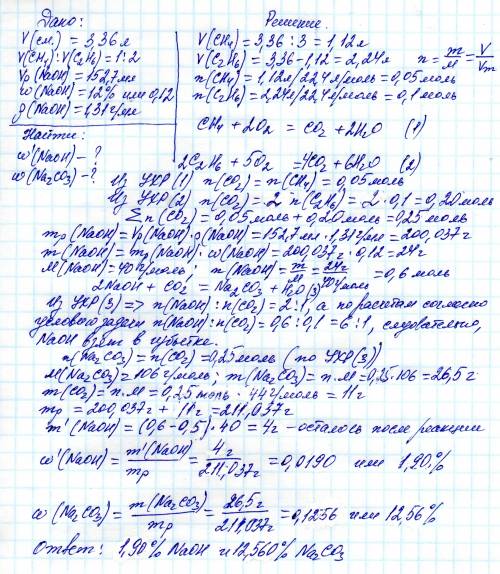 Дано:
Решение.
V(см.) = 3,36 л
V(CH₄):V(C₂H₆) = 1:2
Vp(NaOH) = 152,7 мл
ω(NaOH) = 12% или 0,12
ρ(NaOH) = 1,31 г/мл
Найти:
ω'(NaOH) - ?
ω(Na₂CO₃) - ?
V(CH₄) = 3,36 : 3 = 1,12 л
V(C₂H₆) = 3,36 - 1,12 = 2,24 л n = m/M = V/Vm
n(CH₄) = 1,12 л / 22,4 л/моль = 0,05 моль
n(C₂H₆) = 2,24 л / 22,4 л/моль = 0,1 моль
CH₄ + 2O₂ = CO₂ + 2H₂O (1)
2C₂H₆ + 5O₂ = 4CO₂ + 6H₂O (2)
Из УХР (1) n(CO₂) = n(CH₄) = 0,05 моль
Из УХР (2) n(CO₂) = 2 n(C₂H₆) = 2 · 0,1 = 0,20 моль
Σn(CO₂) = 0,05 моль + 0,20 моль = 0,25 моль
mp(NaOH) = Vp(NaOH) · ρ(NaOH) = 152,7 мл · 1,31 г/мл = 200,037 г
m(NaOH) = mp(NaOH) · ω(NaOH) = 200,037 г · 0,12 = 24 г
M(NaOH) = 40 г/моль; n(NaOH) = m/M = 24 г/40 г/моль = 0,6 моль
2NaOH + CO₂ = Na₂CO₃ + H₂O (3)
Из УХР (3) => n(NaOH) : n(CO₂) = 2:1, а по расчетам согласно
условию задачи n(NaOH) : n(CO₂) = 0,6 : 0,1 = 6:1, следовательно,
NaOH взят в избытке.
n(Na₂CO₃) = n(CO₂) = 0,25 моль (по УХР (3))
M(Na₂CO₃) = 106 г/моль; m(Na₂CO₃) = n·M = 0,25·106 = 26,5 г
m(CO₂) = n·M = 0,25 моль · 44 г/моль = 11 г
mp = 200,037 г + 11 г = 211,037 г
m'(NaOH) = (0,6 - 0,5) · 40 = 4 г - осталось после реакции
ω'(NaOH) = m'(NaOH)/mp = 4 г/211,037 г = 0,0190 или 1,90%
ω(Na₂CO₃) = m(Na₂CO₃)/mp = 26,5 г/211,037 г = 0,1256 или 12,56%
Ответ: 1,90% NaOH и 12,560% Na₂CO₃